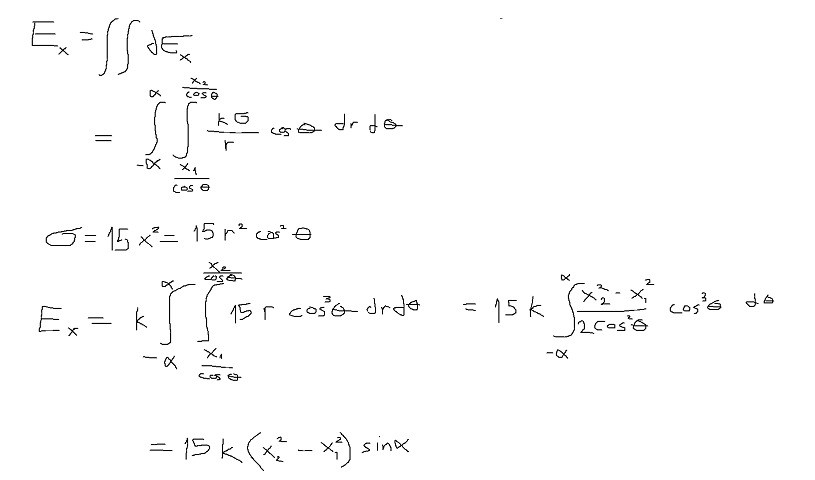 E_x = ∬ dE_x
= ∫_{-α}^{α} ∫_{x_1/cos θ}^{x_2/cos θ} kσ/r cos θ dr dθ
σ = 15 x² = 15 r² cos² θ
E_x = k ∫_{-α}^{α} ∫_{x_1/cos θ}^{x_2/cos θ} 15 r cos³θ dr dθ = 15 k ∫_{-α}^{α} (x_2² - x_1²)/(2 cos²θ) cos³θ dθ
= 15 k (x_2² - x_1²) sin α